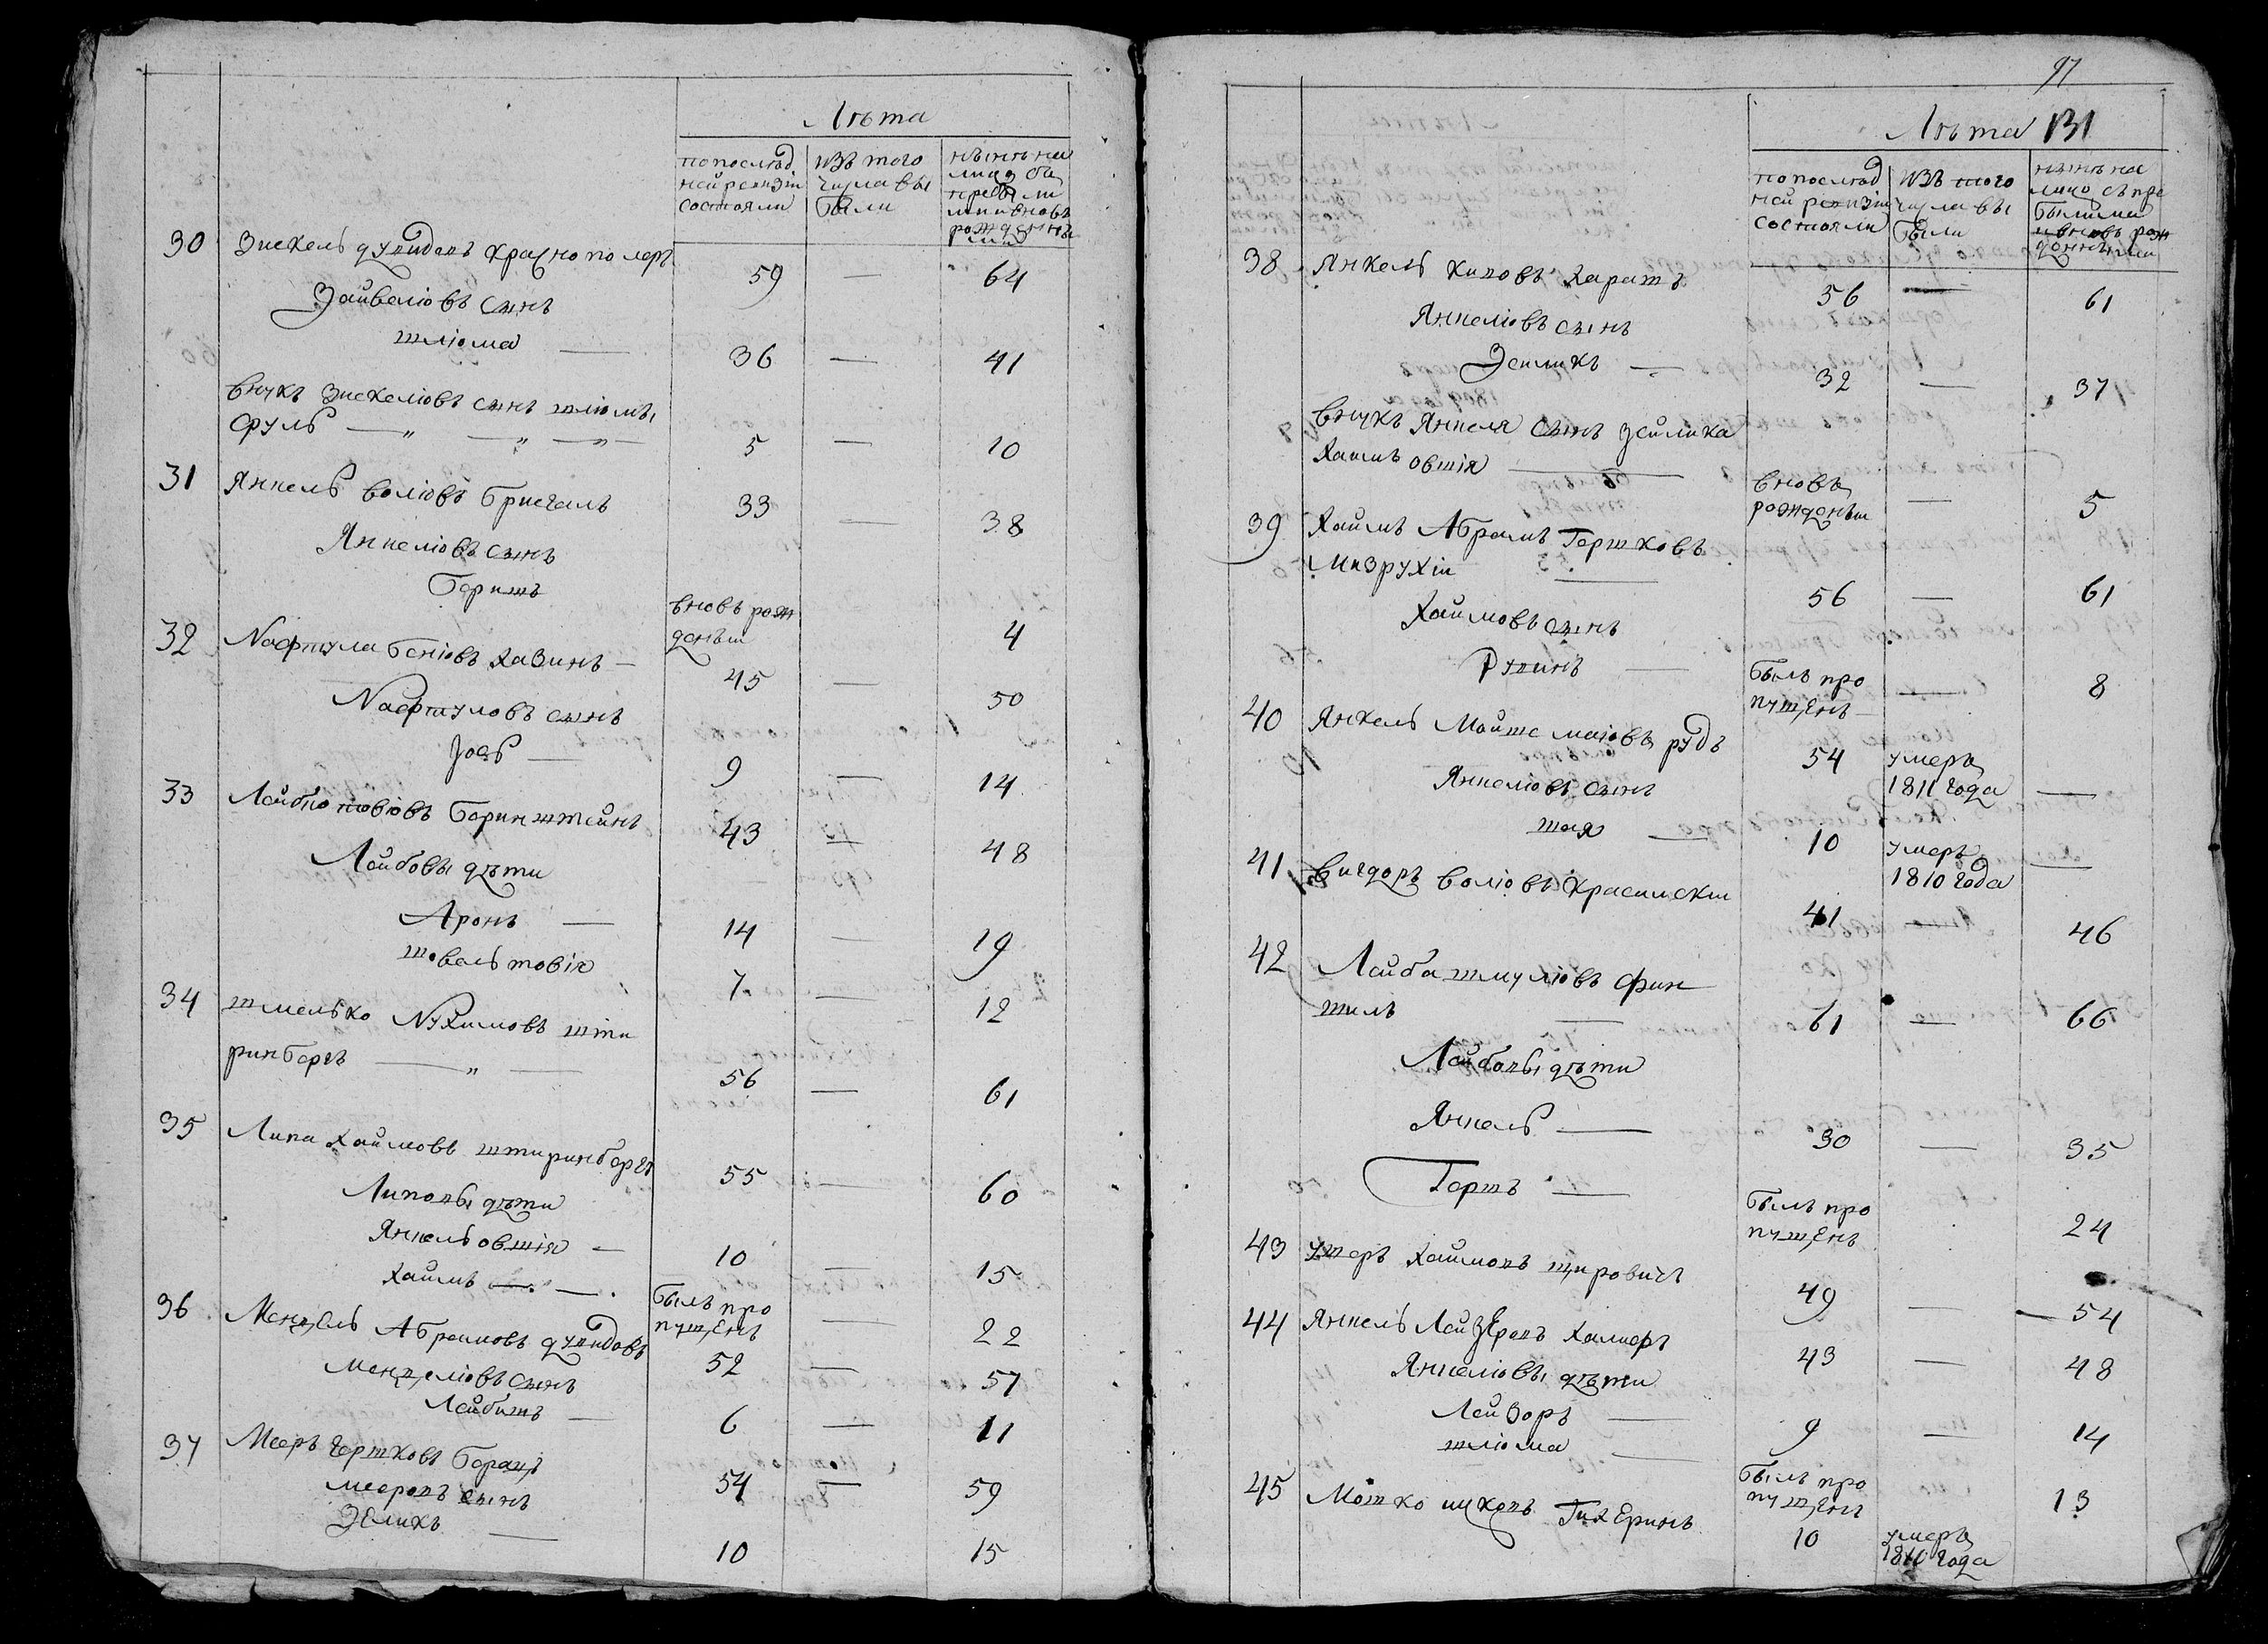 Лѣта
по послѣд
ней ревизіи
состояли
изъ того
числа вы
были
нынѣ на
лицо съ
пребы ли
ми и вновь
рожденны
ми
30 Зискель Дувидовъ Краснополеръ 59 — 64
Зайвеліовъ сынъ
шліома — 36 — 41
внукъ Зискеліовъ сынъ шліомы
Сруль — 5 — 10
31 Янкель Воліовъ Бригаль 33 — 38
Янкеліовъ сынъ
Беришъ вновь рож
денъи 4
32 Nафтула Беніовъ Хазинъ — 45 — 50
Nафтуловъ сынъ
Іось — 9 — 14
33 Лейбко товіовъ Боринштейнъ 43 — 48
Лейбовы дѣти
Аронъ — 14 — 19
шовель товія 7 — 12
34 шмелько Nухимовъ шти
ринбергъ — 56 — 61
35 Липа Хаимовъ штиринбергъ 55 — 60
Липовы дѣти
Янкель овшія — 10 — 15
Хаимъ — былъ про
пущенъ — 22
36 Мендель Абрамовъ Дувидовъ 52 — 57
Менделіовъ сынъ
Лейбишъ — 6 — 11
37 Мееръ Гершковъ Боранъ 54 — 59
мееровъ сынъ
Зеликъ — 10 15
97
Лѣта 131
по послѣд
ней ревизіи
состояли
изъ того
числа вы
были
нынѣ на
лицо съ пре
былими
и вновь рож
денными
38 Янкель Хиловъ Харатъ 56 — 61
Янкеліовъ сынъ
Зейликъ — 32 — 37
внукъ Янкеля сынъ Зейлика
Хаимъ овшія — вновь
рожденъи — 5
39 Хаимъ Абрамъ Гершковъ
Мизрухи — 56 — 61
Хаимовъ сынъ
Рувинъ — былъ про
пущенъ — 8
40 Янкель Мойше маіовъ рудъ 54 умеръ
1811 года —
Янкеліовъ сынъ
шая — 10 умеръ
1810 года —
41 Вигдоръ Воліовъ Красилскіи 41 — 46
42 Лейба шмуліовъ Фин
тиль — 61 — 66
Лейбовы дѣти
Янкель — 30 — 35
Гершъ — былъ про
пущенъ 24
43 ушеръ Хаимовъ щировичъ 49 — 54
44 Янкель Лейзеровъ Халиеръ 43 — 48
Янкеліовы дѣти
Лейзоръ — 9 — 14
шліома — былъ про
пущенъ 13
45 Мошко ицковъ Гихеринъ 10 умеръ
1811 года